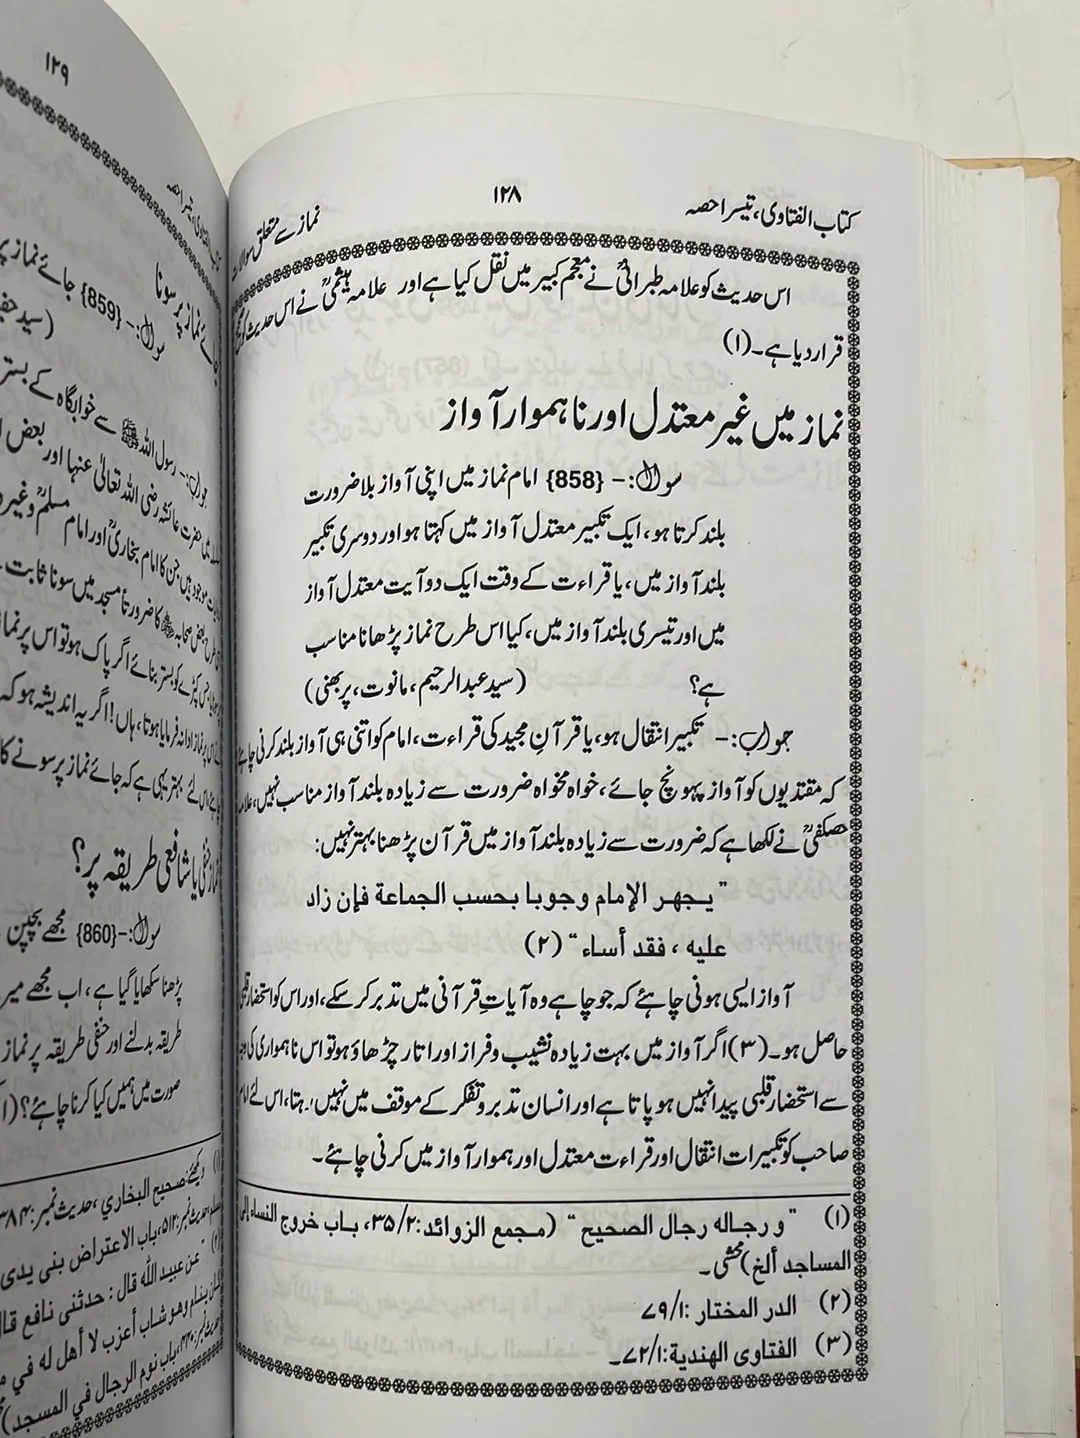 کتاب الفتاوی، تیسرا حصہ ۱۲۸ نماز سے متعلق سوالات
اس حدیث کو علامہ طبرانیؒ نے معجم کبیر میں نقل کیا ہے اور علامہ ہیثمیؒ نے اس حدیث کو صحیح
قرار دیا ہے۔(۱)
نماز میں غیر معتدل اور ناہموار آواز
سوال:- {858} امام نماز میں اپنی آواز بلا ضرورت
بلند کرتا ہو، ایک تکبیر معتدل آواز میں کہتا ہو اور دوسری تکبیر
بلند آواز میں، یا قراءت کے وقت ایک دو آیت معتدل آواز
میں اور تیسری بلند آواز میں، کیا اس طرح نماز پڑھانا مناسب
ہے؟ (سید عبدالرحیم، مانوت، پربھنی)
جواب:- تکبیر انتقال ہو، یا قرآنِ مجید کی قراءت، امام کو اتنی ہی آواز بلند کرنی چاہئے
کہ مقتدیوں کو آواز پہونچ جائے، خواہ مخواہ ضرورت سے زیادہ بلند آواز مناسب نہیں، علامہ
حصکفیؒ نے لکھا ہے کہ ضرورت سے زیادہ بلند آواز میں قرآن پڑھنا بہتر نہیں:
" یجهر الإمام وجوبا بحسب الجماعة فإن زاد
علیه ، فقد أساء " (۲)
آواز ایسی ہونی چاہئے کہ جو چاہے وہ آیاتِ قرآنی میں تدبر کر سکے، اور اس کو استحضار قلبی
حاصل ہو۔(۳) اگر آواز میں بہت زیادہ نشیب و فراز اور اتار چڑھاؤ ہو تو اس ناہمواری کی وجہ
سے استحضار قلبی پیدا نہیں ہو پاتا ہے اور انسان تدبر و تفکر کے موقف میں نہیں رہتا، اس لئے امام
صاحب کو تکبیرات انتقال اور قراءت معتدل اور ہموار آواز میں کرنی چاہئے۔
(۱) " و رجاله رجال الصحیح " (مجمع الزوائد:۳۵/۲، باب خروج النساء إلی
المساجد ألخ) محشی۔
(۲) الدر المختار :۷۹/۱
(۳) الفتاوی الهندیة:۷۲/۱۔
۱۲۹
سوال:- {859} جائے نماز پر
جواب:- رسول اللہ ﷺ سے خوابگاہ کے بستر
حضرت عائشہ رضی اللہ تعالیٰ عنہا اور بعض
موجود ہیں جن کا امام بخاریؒ اور امام مسلمؒ وغیرہ
بعض صحابہؓ کا ضرورتاً مسجد میں سونا ثابت
کپڑے کو بستر بنائے اگر پاک ہو تو اس پر نماز
نہ فرمایا ہوتا، ہاں! اگر یہ اندیشہ ہو کہ
لئے بہتر یہی ہے کہ جائے نماز پر سونے
حنفی یا شافعی طریقہ پر؟
سوال:-{860} مجھے بچپن
پڑھنا سکھایا گیا ہے، اب مجھے میر
طریقہ بدلنے اور حنفی طریقہ پر نماز
صورت میں ہمیں کیا کرنا چاہئے؟
(۱) دیکھئے: صحیح البخاري ، حدیث نمبر:
حدیث نمبر: ۵۱۲، باب الاعتراض بنی یدی
(۲) " عن عبید الله قال : حدثنی نافع
ینام وهو شاب أعزب لا أهل له في
باب نوم الرجال في المسجد)